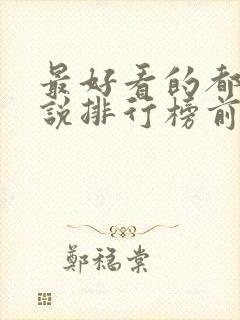 最好看的都
說排行榜前
鄭穩棠